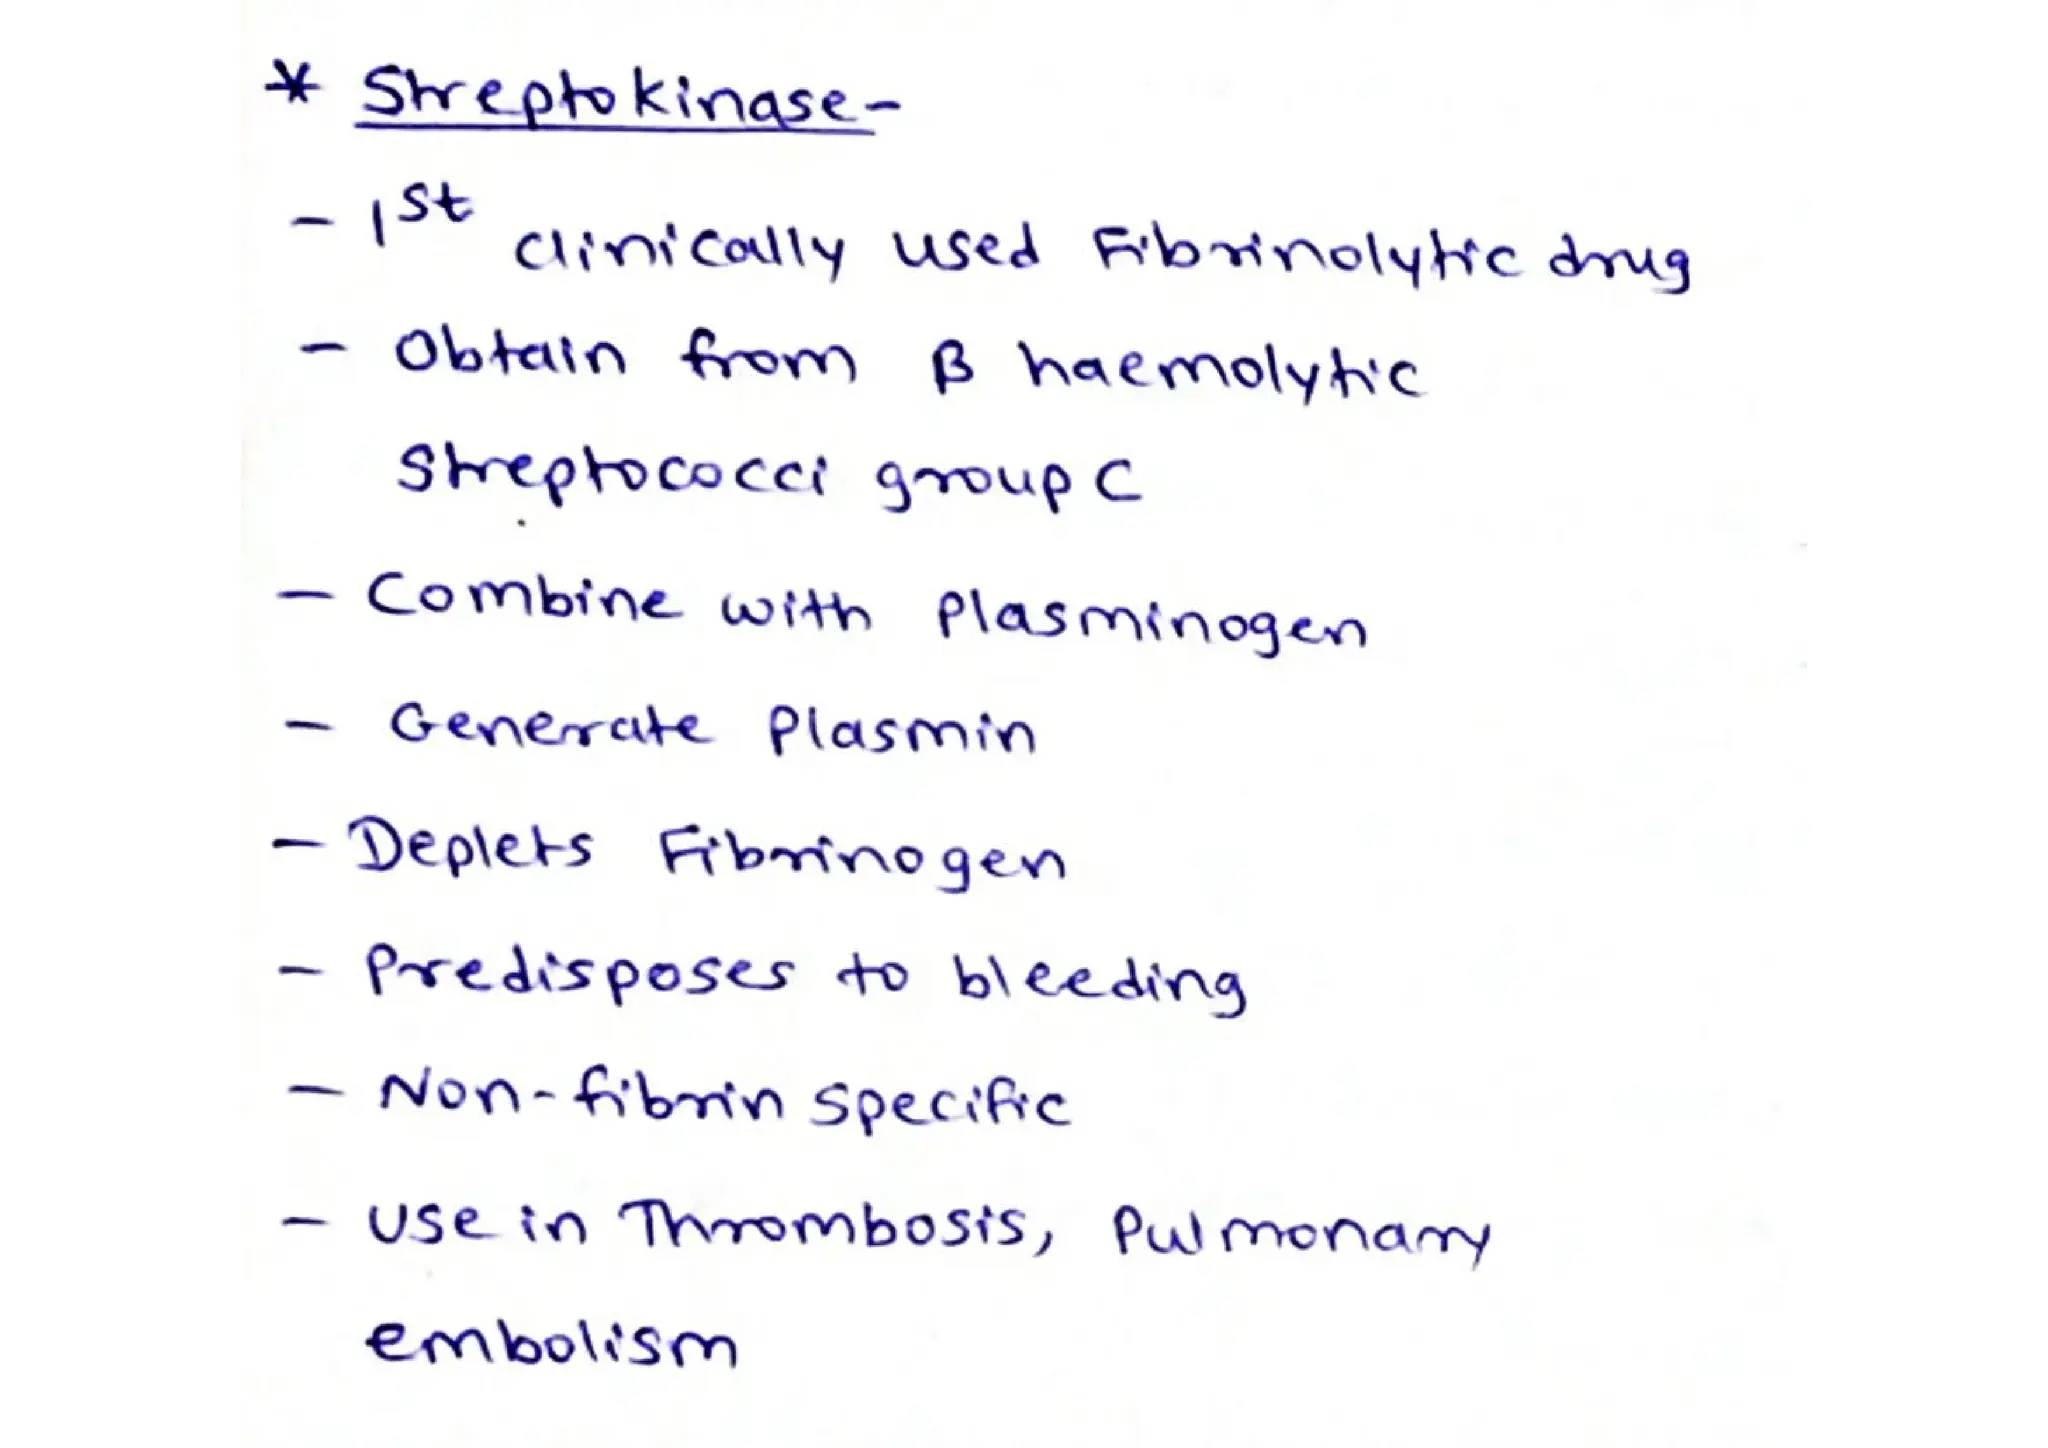 * Streptokinase-
- 1st clinically used Fibrinolytic drug
- Obtain from B haemolytic
Streptococci group C
- Combine with Plasminogen
- Generate Plasmin
- Deplets Fibrinogen
- Predisposes to bleeding
- Non-fibrin specific
- Use in Thrombosis, Pulmonary
embolism